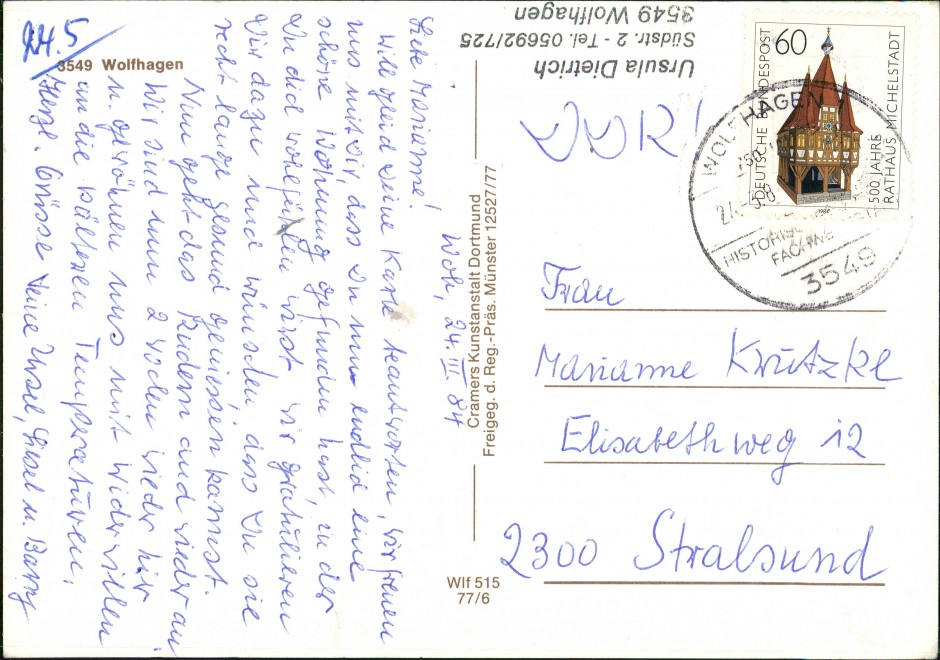 24.5
3549 Wolfhagen
Woh, 24. III. 84
Liebe Marianne!
Will gleich Deine Karte beantworten, wir freuen
uns mit Dir, dass Du nun endlich eine
schöne Wohnung gefunden hast, in der
Du dich wohlfühlen wirst. Wir gratulieren
Dir dazu und wünschen, dass Du sie
recht lange gesund geniessen kannst.
Nun geht das Rudern auch wieder an
Wir sind nun 2 Wochen wieder hier
u. gewöhnen uns mit Widerwillen
an die kälteren Temperaturen.
Herzl. Grüsse Deine Ursel, Liesel u. Barry
Cramers Kunstanstalt Dortmund
Freigeg. d. Reg.-Präs. Münster 12527/77
Wlf 515
77/6
Ursula Dietrich
Südstr. 2 - Tel. 05692/725
3549 Wolfhagen
DDR!
60
DEUTSCHE BUNDESPOST
500 JAHRE
RATHAUS MICHELSTADT
WOLFHAGEN
HISTORISCHE
FACHWE
3549
Frau
Marianne Krützke
Elisabethweg 12
2300 Stralsund